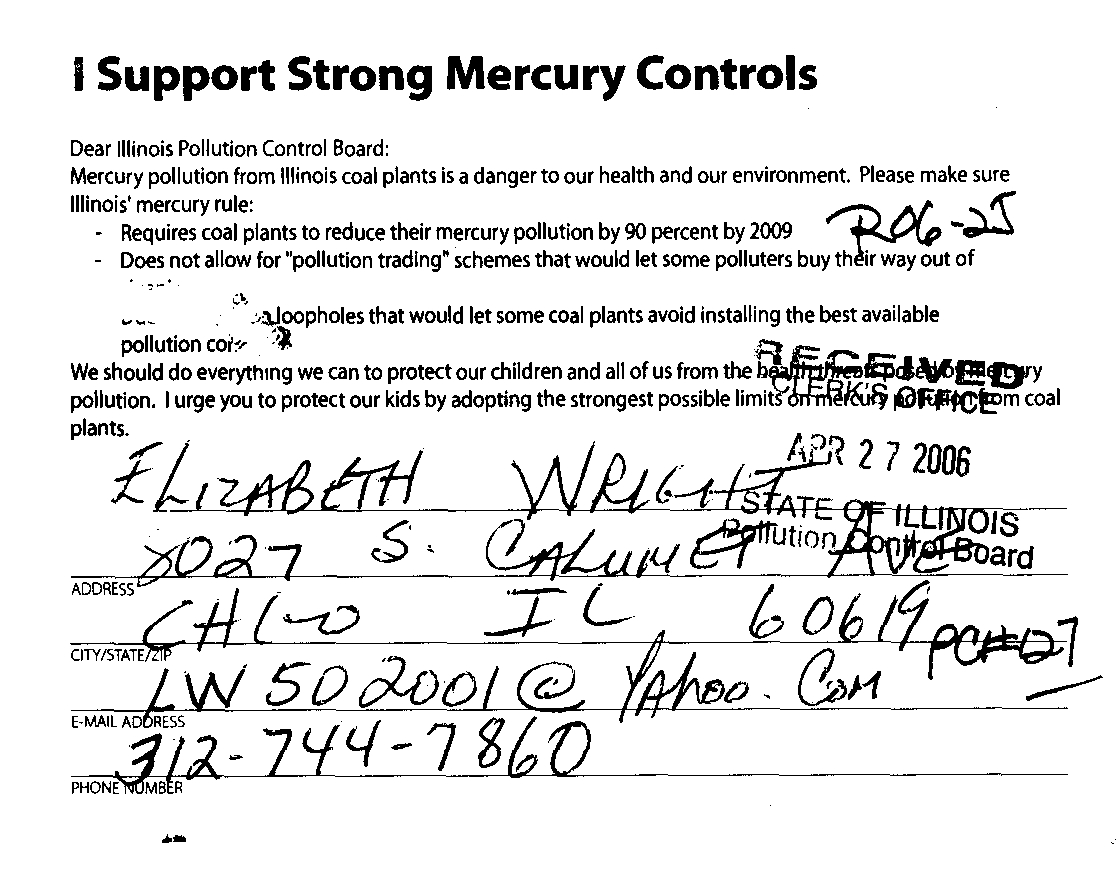 I Support Strong Mercury Controls
Dear Illinois Pollution Control Board:
Mercury pollution from Illinois coal plants is a danger to our health and our environment. Please make sure
Illinois' mercury rule:
R06-25
- Requires coal plants to reduce their mercury pollution by 90 percent by 2009
- Does not allow for "pollution trading" schemes that would let some polluters buy their way out of
loopholes that would let some coal plants avoid installing the best available
pollution
We should do everything we can to protect our children and all of us from the health threats posed by mercury
pollution. I urge you to protect our kids by adopting the strongest possible limits on mercury pollution from coal
plants.
RECEIVED
CLERK'S OFFICE
APR 27 2006
STATE OF ILLINOIS
Pollution Control Board
ELIZABETH WRIGHT
8027 S. CALUMET AVE
ADDRESS
CHGO IL 60619
PC#127
CITY/STATE/ZIP
LW502001@Yahoo.Com
E-MAIL ADDRESS
312-744-7860
PHONE NUMBER